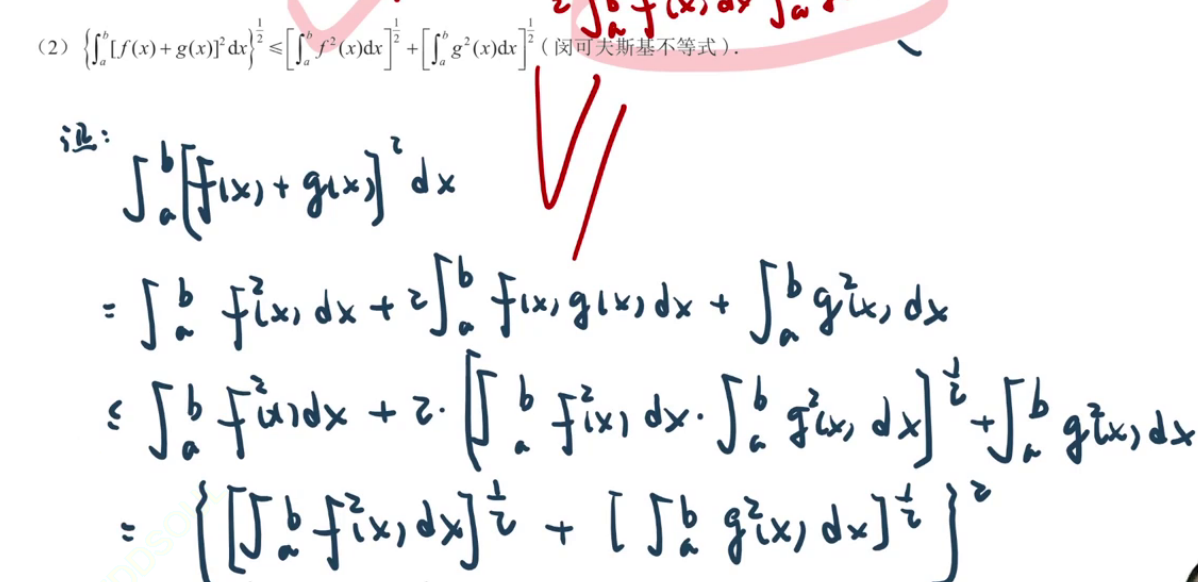 2∫_a^b f(x)dx ∫_a
(2) {∫_a^b [f(x)+g(x)]²dx}^{1/2} ≤ [∫_a^b f²(x)dx]^{1/2} + [∫_a^b g²(x)dx]^{1/2} (闵可夫斯基不等式).
证:
∫_a^b [f(x)+g(x)]² dx
= ∫_a^b f²(x)dx + 2∫_a^b f(x)g(x)dx + ∫_a^b g²(x)dx
≤ ∫_a^b f²(x)dx + 2·[∫_a^b f²(x)dx·∫_a^b g²(x)dx]^{1/2} + ∫_a^b g²(x)dx
= {[∫_a^b f²(x)dx]^{1/2} + [∫_a^b g²(x)dx]^{1/2}}²